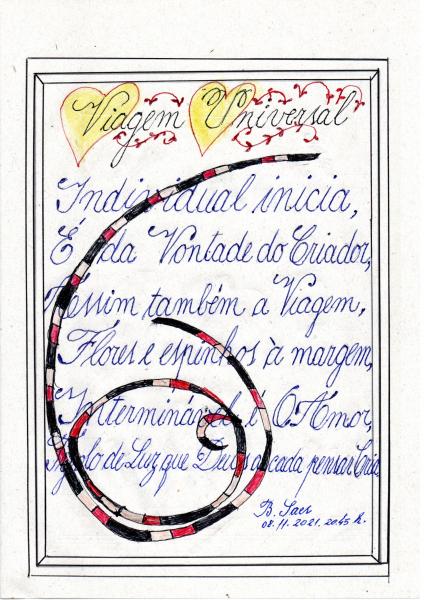 Viagem Universal
Individual inicia,
É da Vontade do Criador,
Assim também a Viagem,
Flores e espinhos à margem,
Interminável é O Amor,
de Luz que Deus a cada pensar Cria
B. Saer
08.11.2021. 20:45 h.